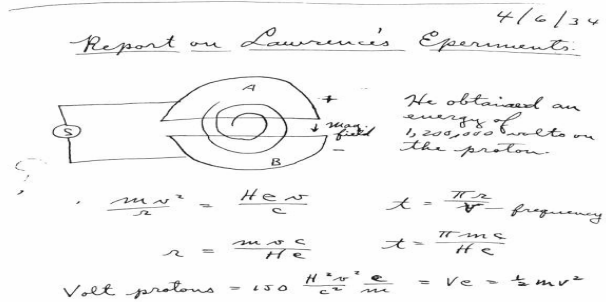 4/6/34
Report on Lawrence's Eperiments.
A
+
S
↓ mag. field
−
B
He obtained an
energy of
1,200,000 volts on
the proton.
mv²/r = Hev/c
t = πr/v – frequency
r = mvc/He
t = πmc/He
Volt protons = 150 H²r²/c² e/m = Ve = ½mv²